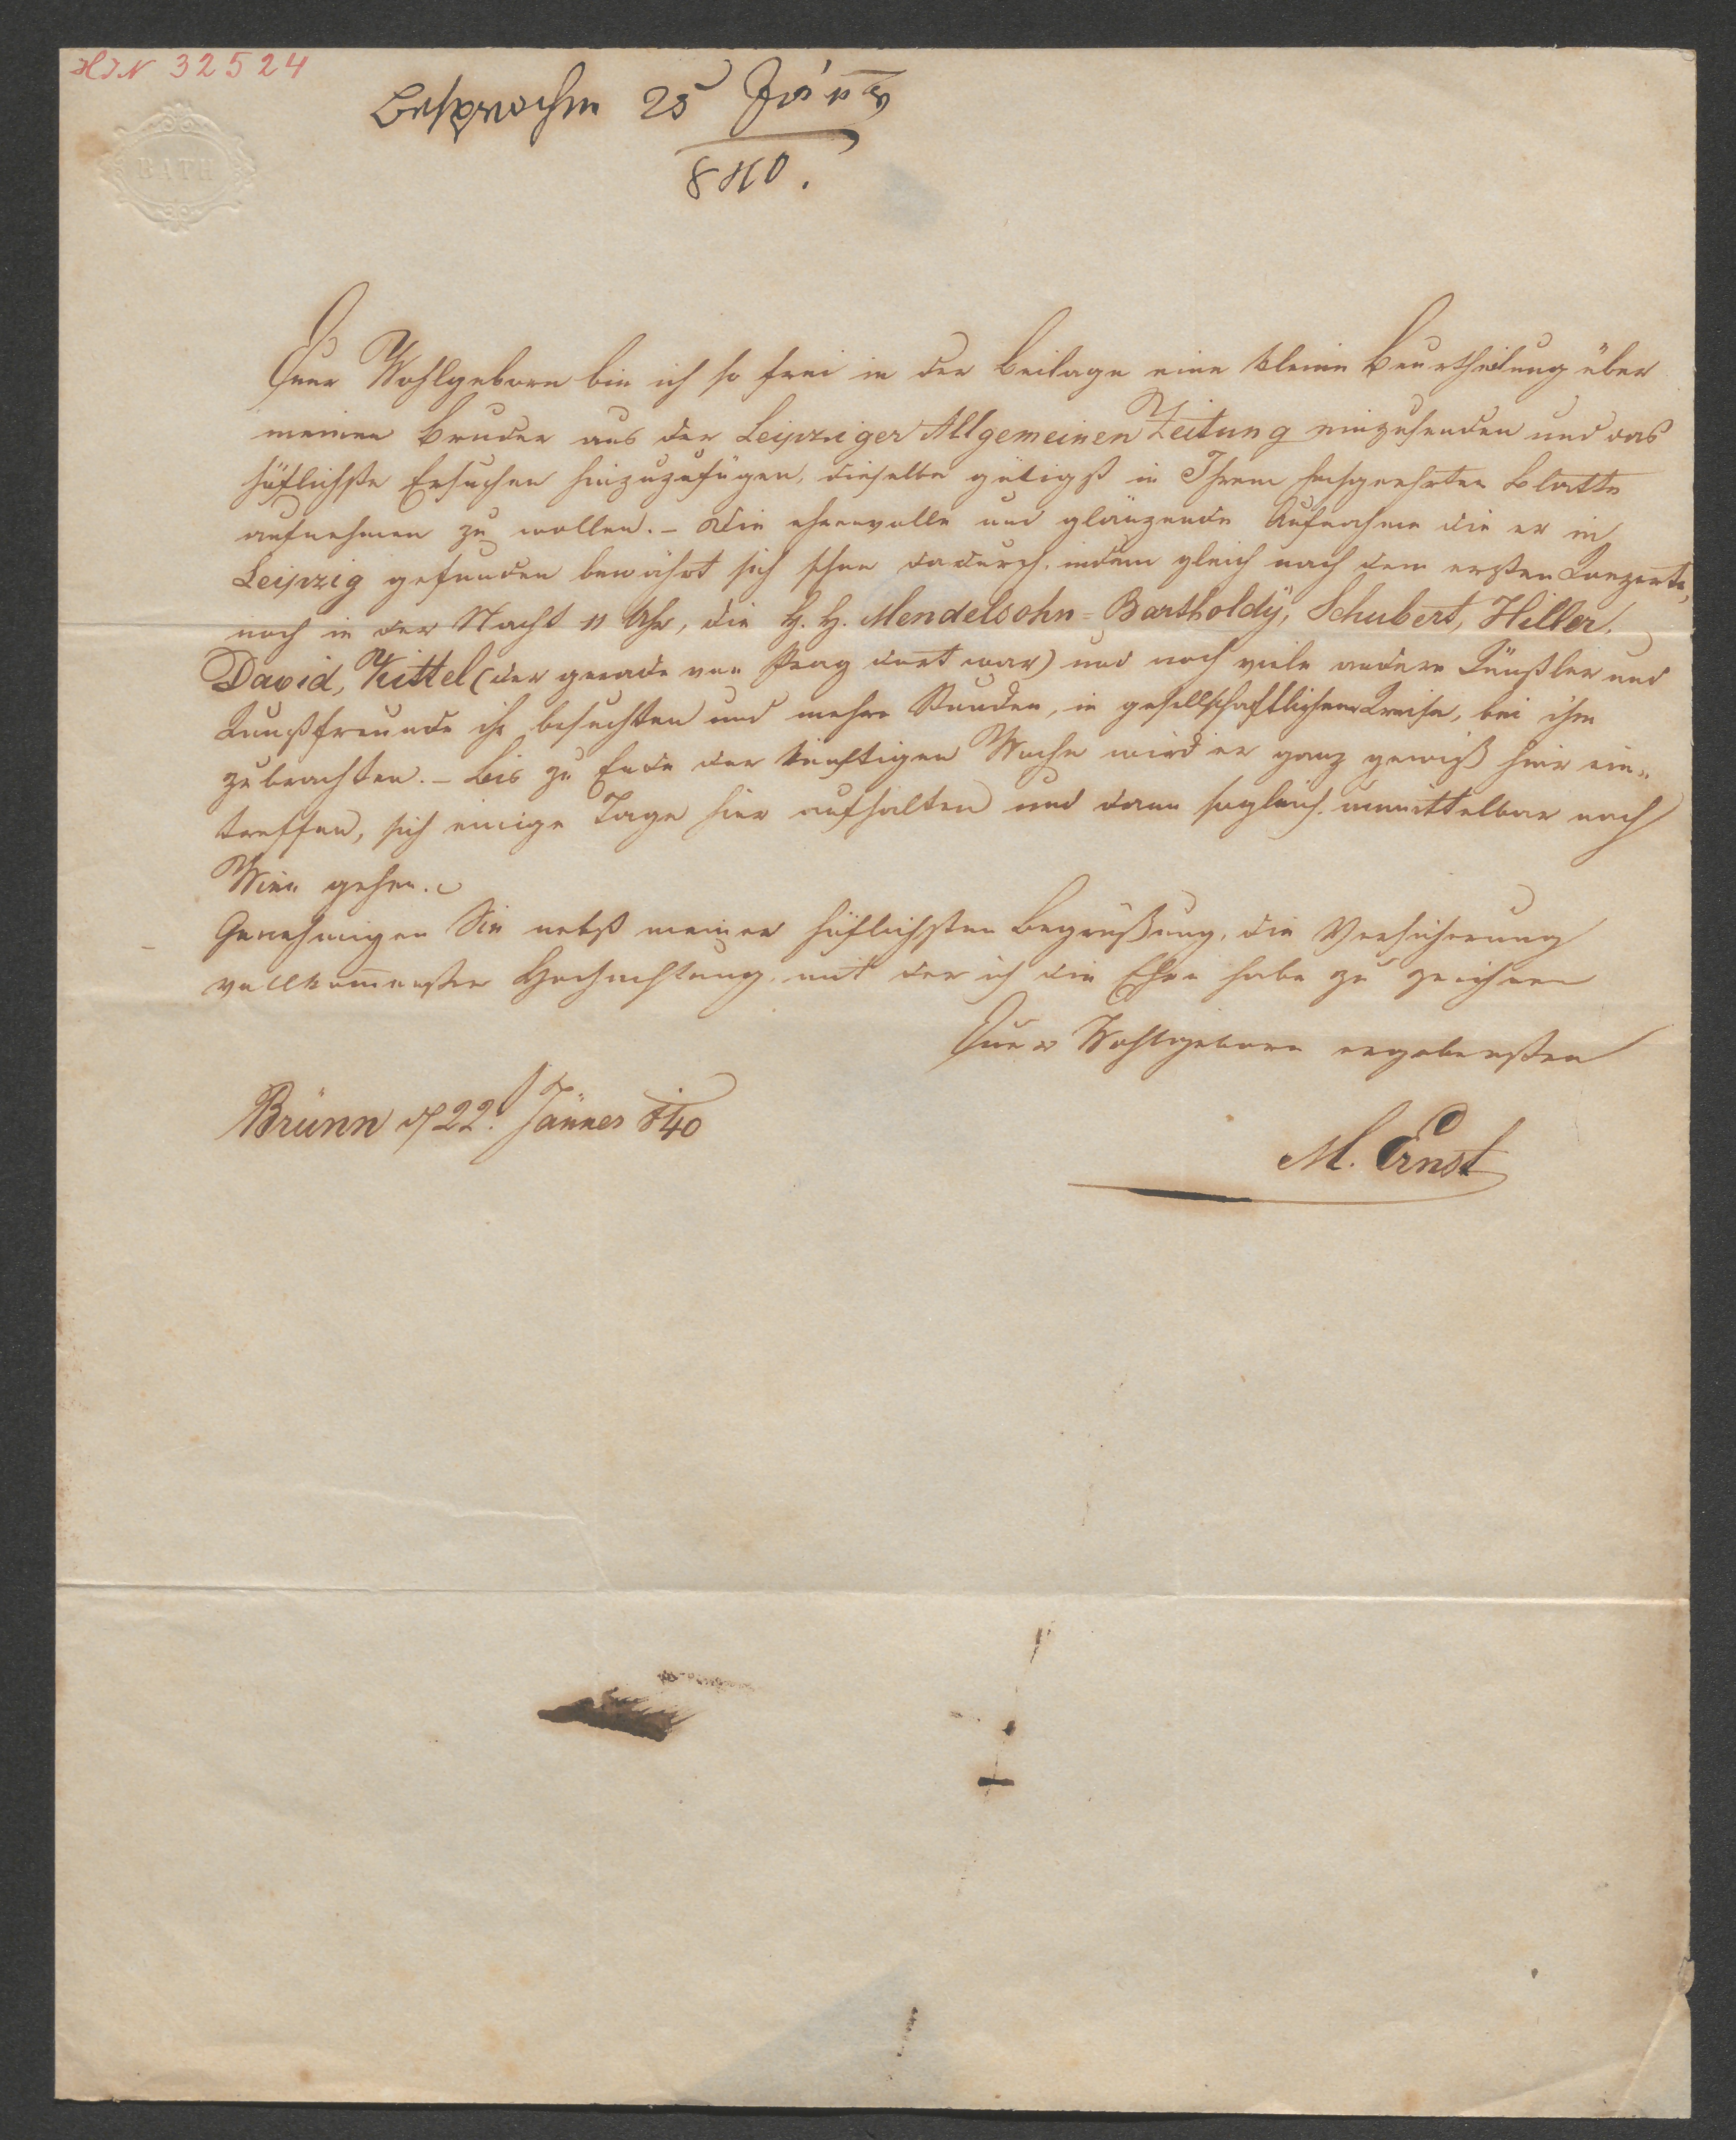 HIN 32524
BATH
Besprochen 25 Jänn
840.
Euer Wohlgeborn bin ich so frei in der Beilage eine kleine Beurtheilung über
meinen Bruder aus der Leipziger Allgemeinen Zeitung einzusenden und das
höflichste Ersuchen hinzuzufügen, dieselbe gütigst in Ihrem hochgeehrten Blatte
aufnehmen zu wollen. – Die ehrenvolle und glänzende Aufnahme die er in
Leipzig gefunden bewährt sich schon dadurch, indem gleich nach dem ersten Konzerte,
noch in der Nacht 11 Uhr, die H. H. Mendelsohn-Bartholdÿ, Schubert, Hiller,
David, Kittel (der gerade von Prag dort war) und noch viele andere Künstler und
Kunstfreunde ihn besuchten und mehre Stunden, in gesellschaftlichem Kreise, bei ihm
zubrachten. – Bis zu Ende der künftigen Woche wird er ganz gewiß hier ein-
treffen, sich einige Tage hier aufhalten und dann sogleich unmittelbar nach
Wien gehen.
Genehmigen Sie nebst meiner höflichsten Begrüßung, die Versicherung
vollkom̄enster Hochachtung, mit der ich die Ehre habe zu zeichnen
Euer Wohlgeborn ergebensten
Brünn d 22. Jänner 840
M. Ernst